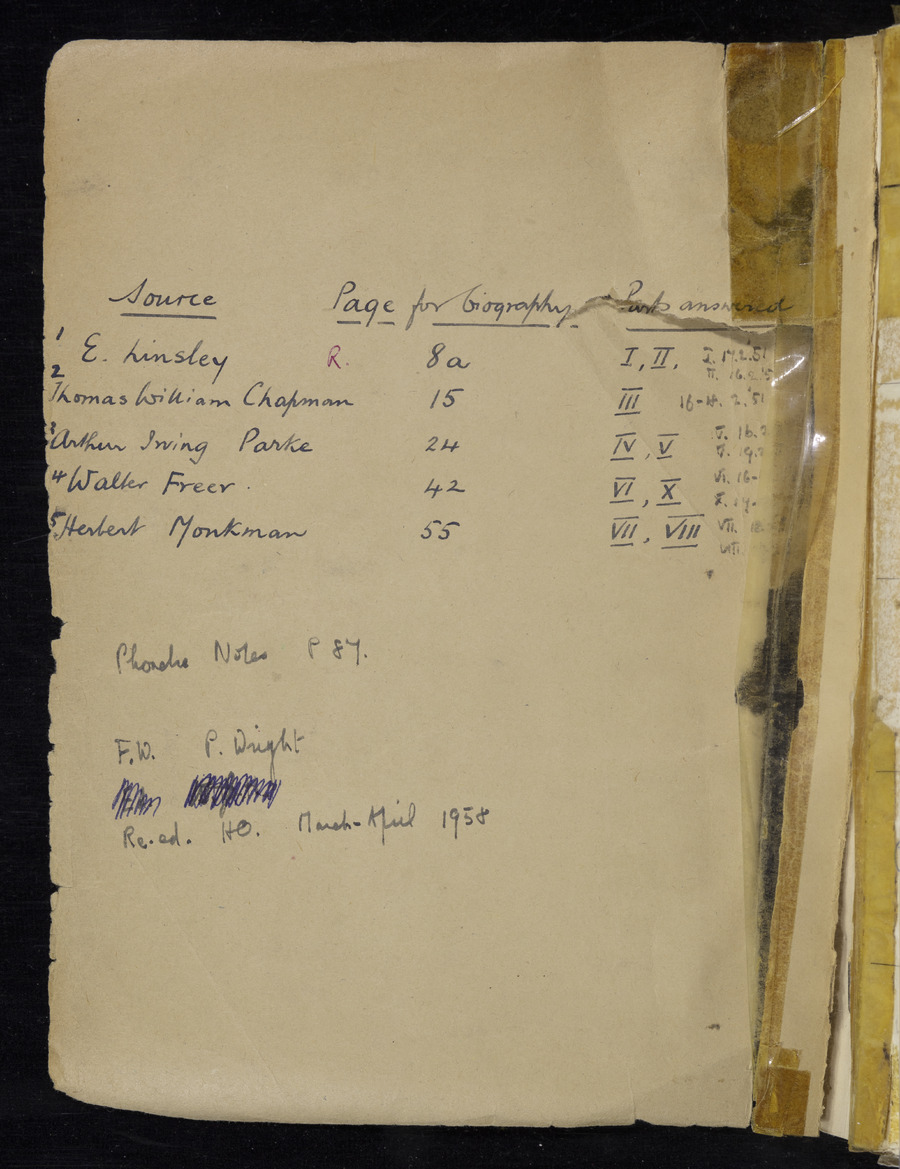 Source Page for biography Parts answered
1 E. Linsley R. 8a I, II, I. 17.2.51
II. 16.2.5
2 Thomas William Chapman 15 III 16-18.2.'51
3 Arthur Irving Parke 24 IV, V V. 19.2
4 Walter Freer. 42 VI, X VI. 16-
X. 17.
5 Herbert Monkman 55 VII, VIII VII. 18.
VIII.
Phonetic Notes P 87.
F.W. P. Wright
Re.ed. HO. March-April 1958